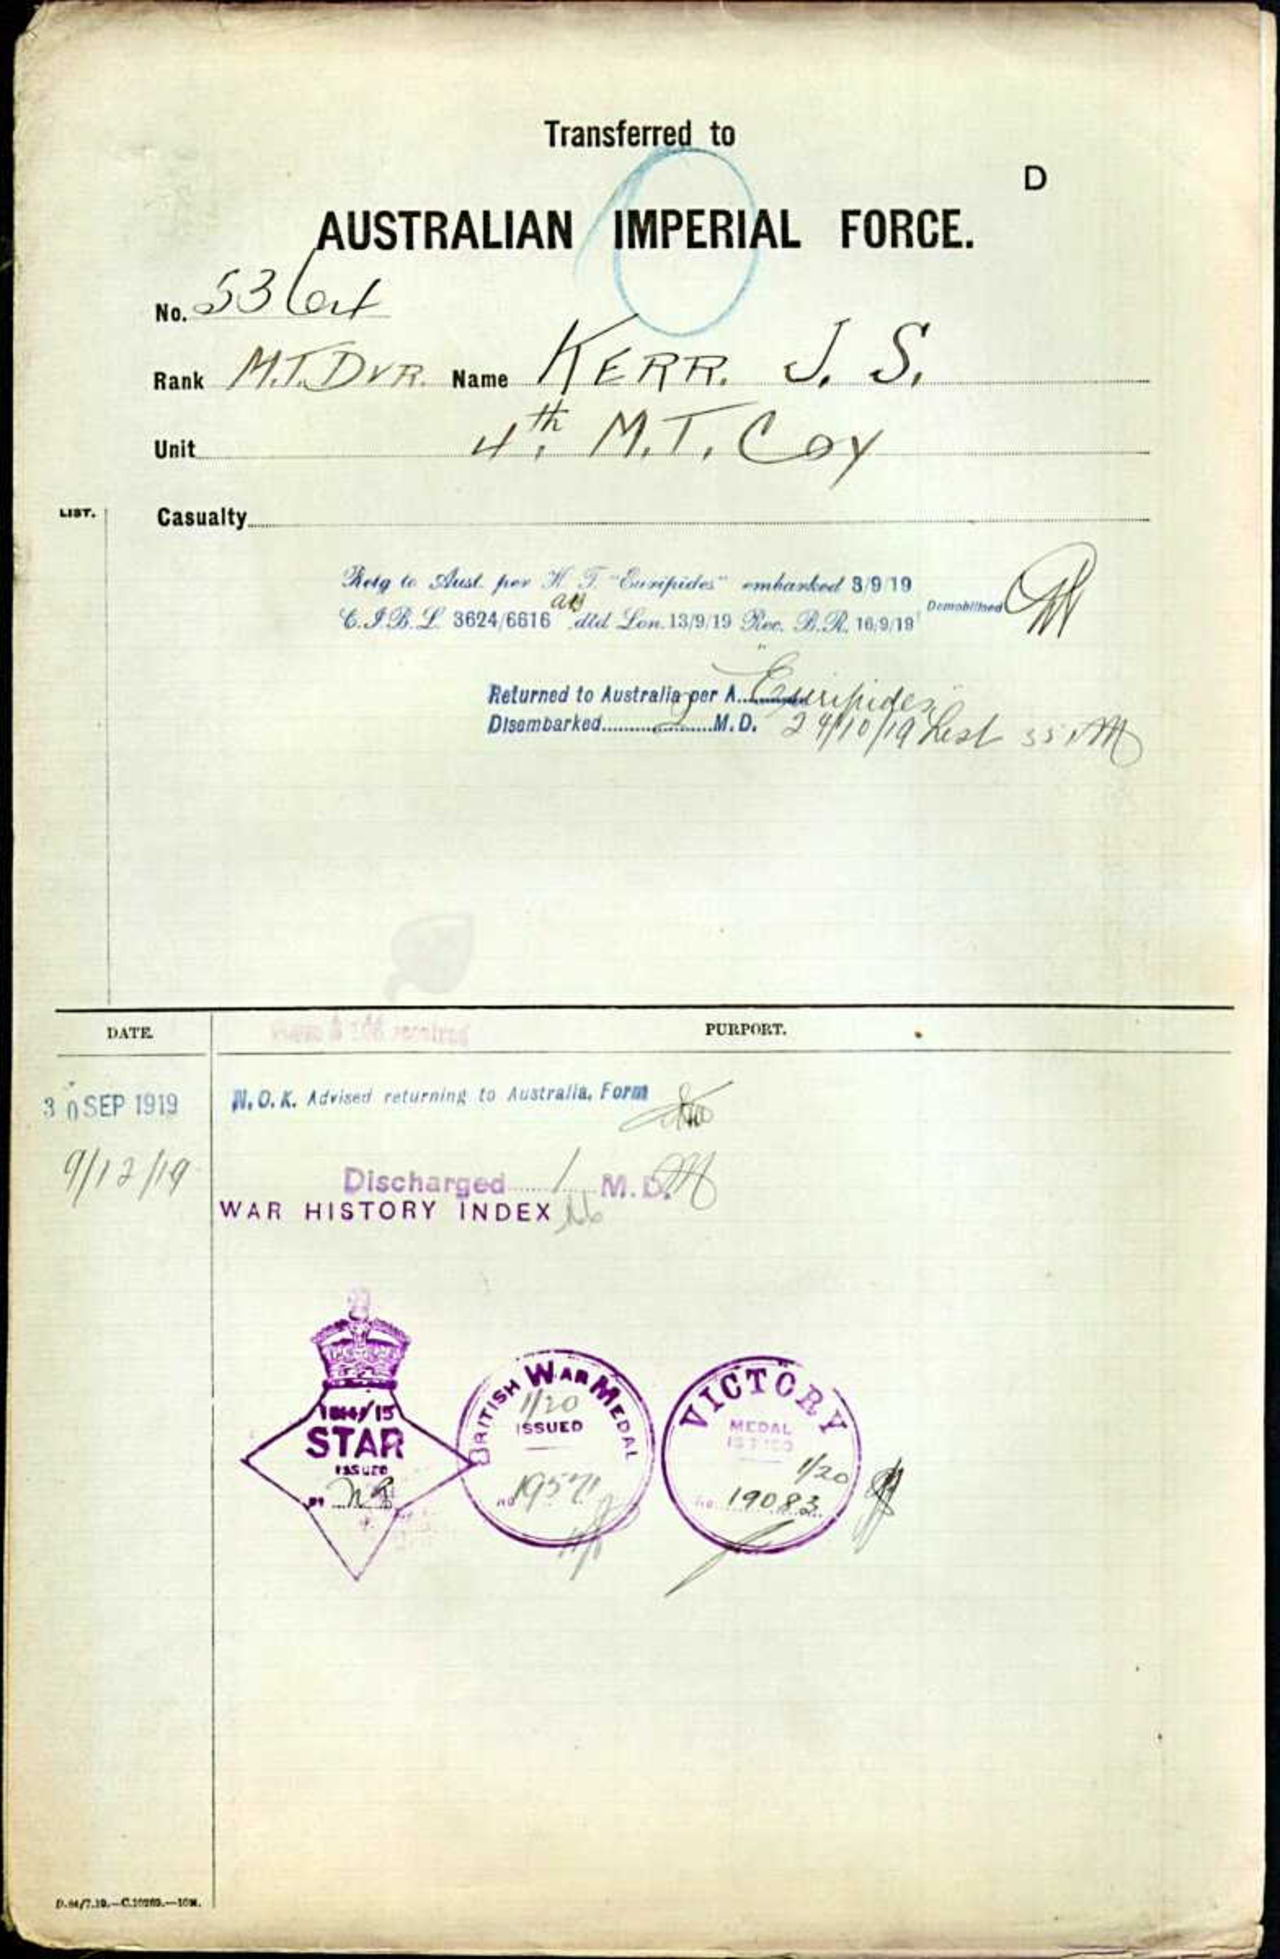 Transferred to
D
AUSTRALIAN IMPERIAL FORCE.
No.
Rank M.T. DVR. Name KERR. J. S.
Unit 4th. M.T. Coy
LIST.
Casualty
Retg to Aust. per H. T. "Euripides" embarked 3/9/19
C.I.B.L. 3624/6616 dtd Lon. 13/9/19 Rec. B.R. 16/9/19
Demobilised
Returned to Australia per A. Euripides
Disembarked 2 M.D. 24/10/19 List
DATE.
PURPORT.
30 SEP 1919
N.O.K. Advised returning to Australia, Form
9/12/19
Discharged 1 M.D.
WAR HISTORY INDEX
1914/15
STAR
ISSUED
BY
BRITISH WAR MEDAL
1/20
ISSUED
No 19571
VICTORY
MEDAL
ISSUED
1/20
No. 19083
D.84/7.19.—C.10269.—10M.